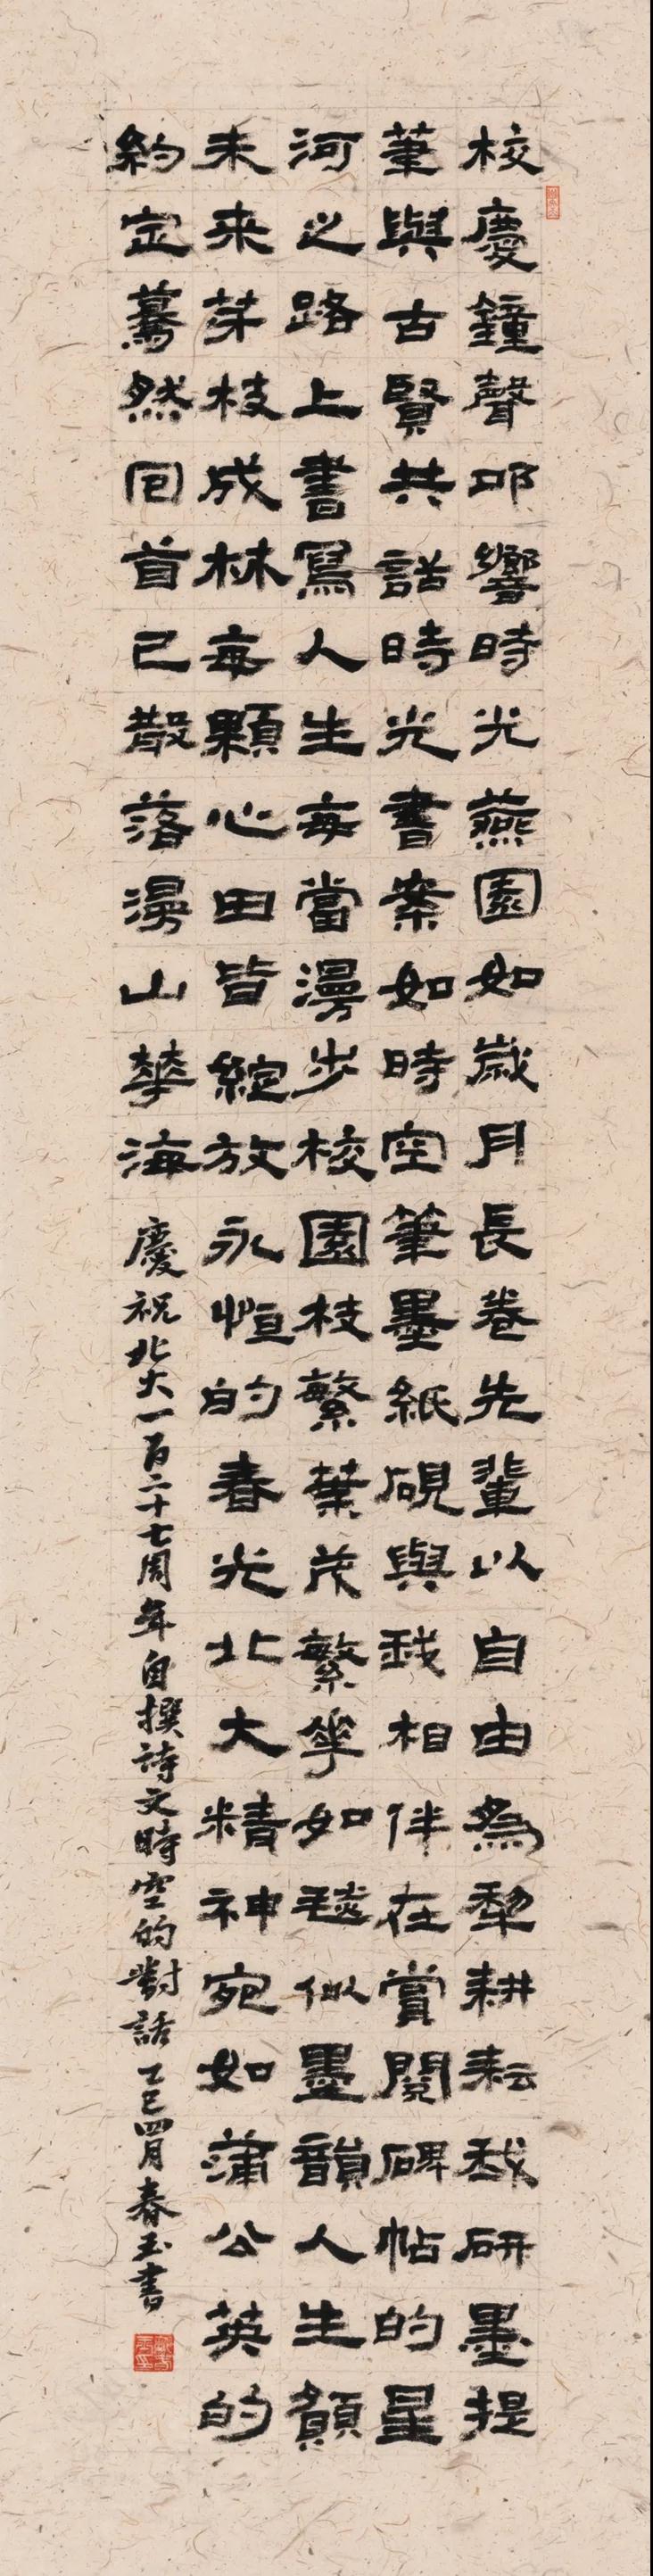 校慶鐘聲叩響時光燕園如歲月長卷先輩以自由為犁耕耘我研墨提
筆與古賢共話時光書案如時空筆墨紙硯與我相伴在賞閱碑帖的星
河之路上書寫人生每當漫步校園枝繁葉茂繁華如毬似墨韻人生願
未來芽枝成林每顆心田皆綻放永恒的春光北大精神宛如蒲公英的
約定驀然回首已散落漫山華海 慶祝北大一百二十七周年自撰詩文時空的對話 乙巳四月春玉書